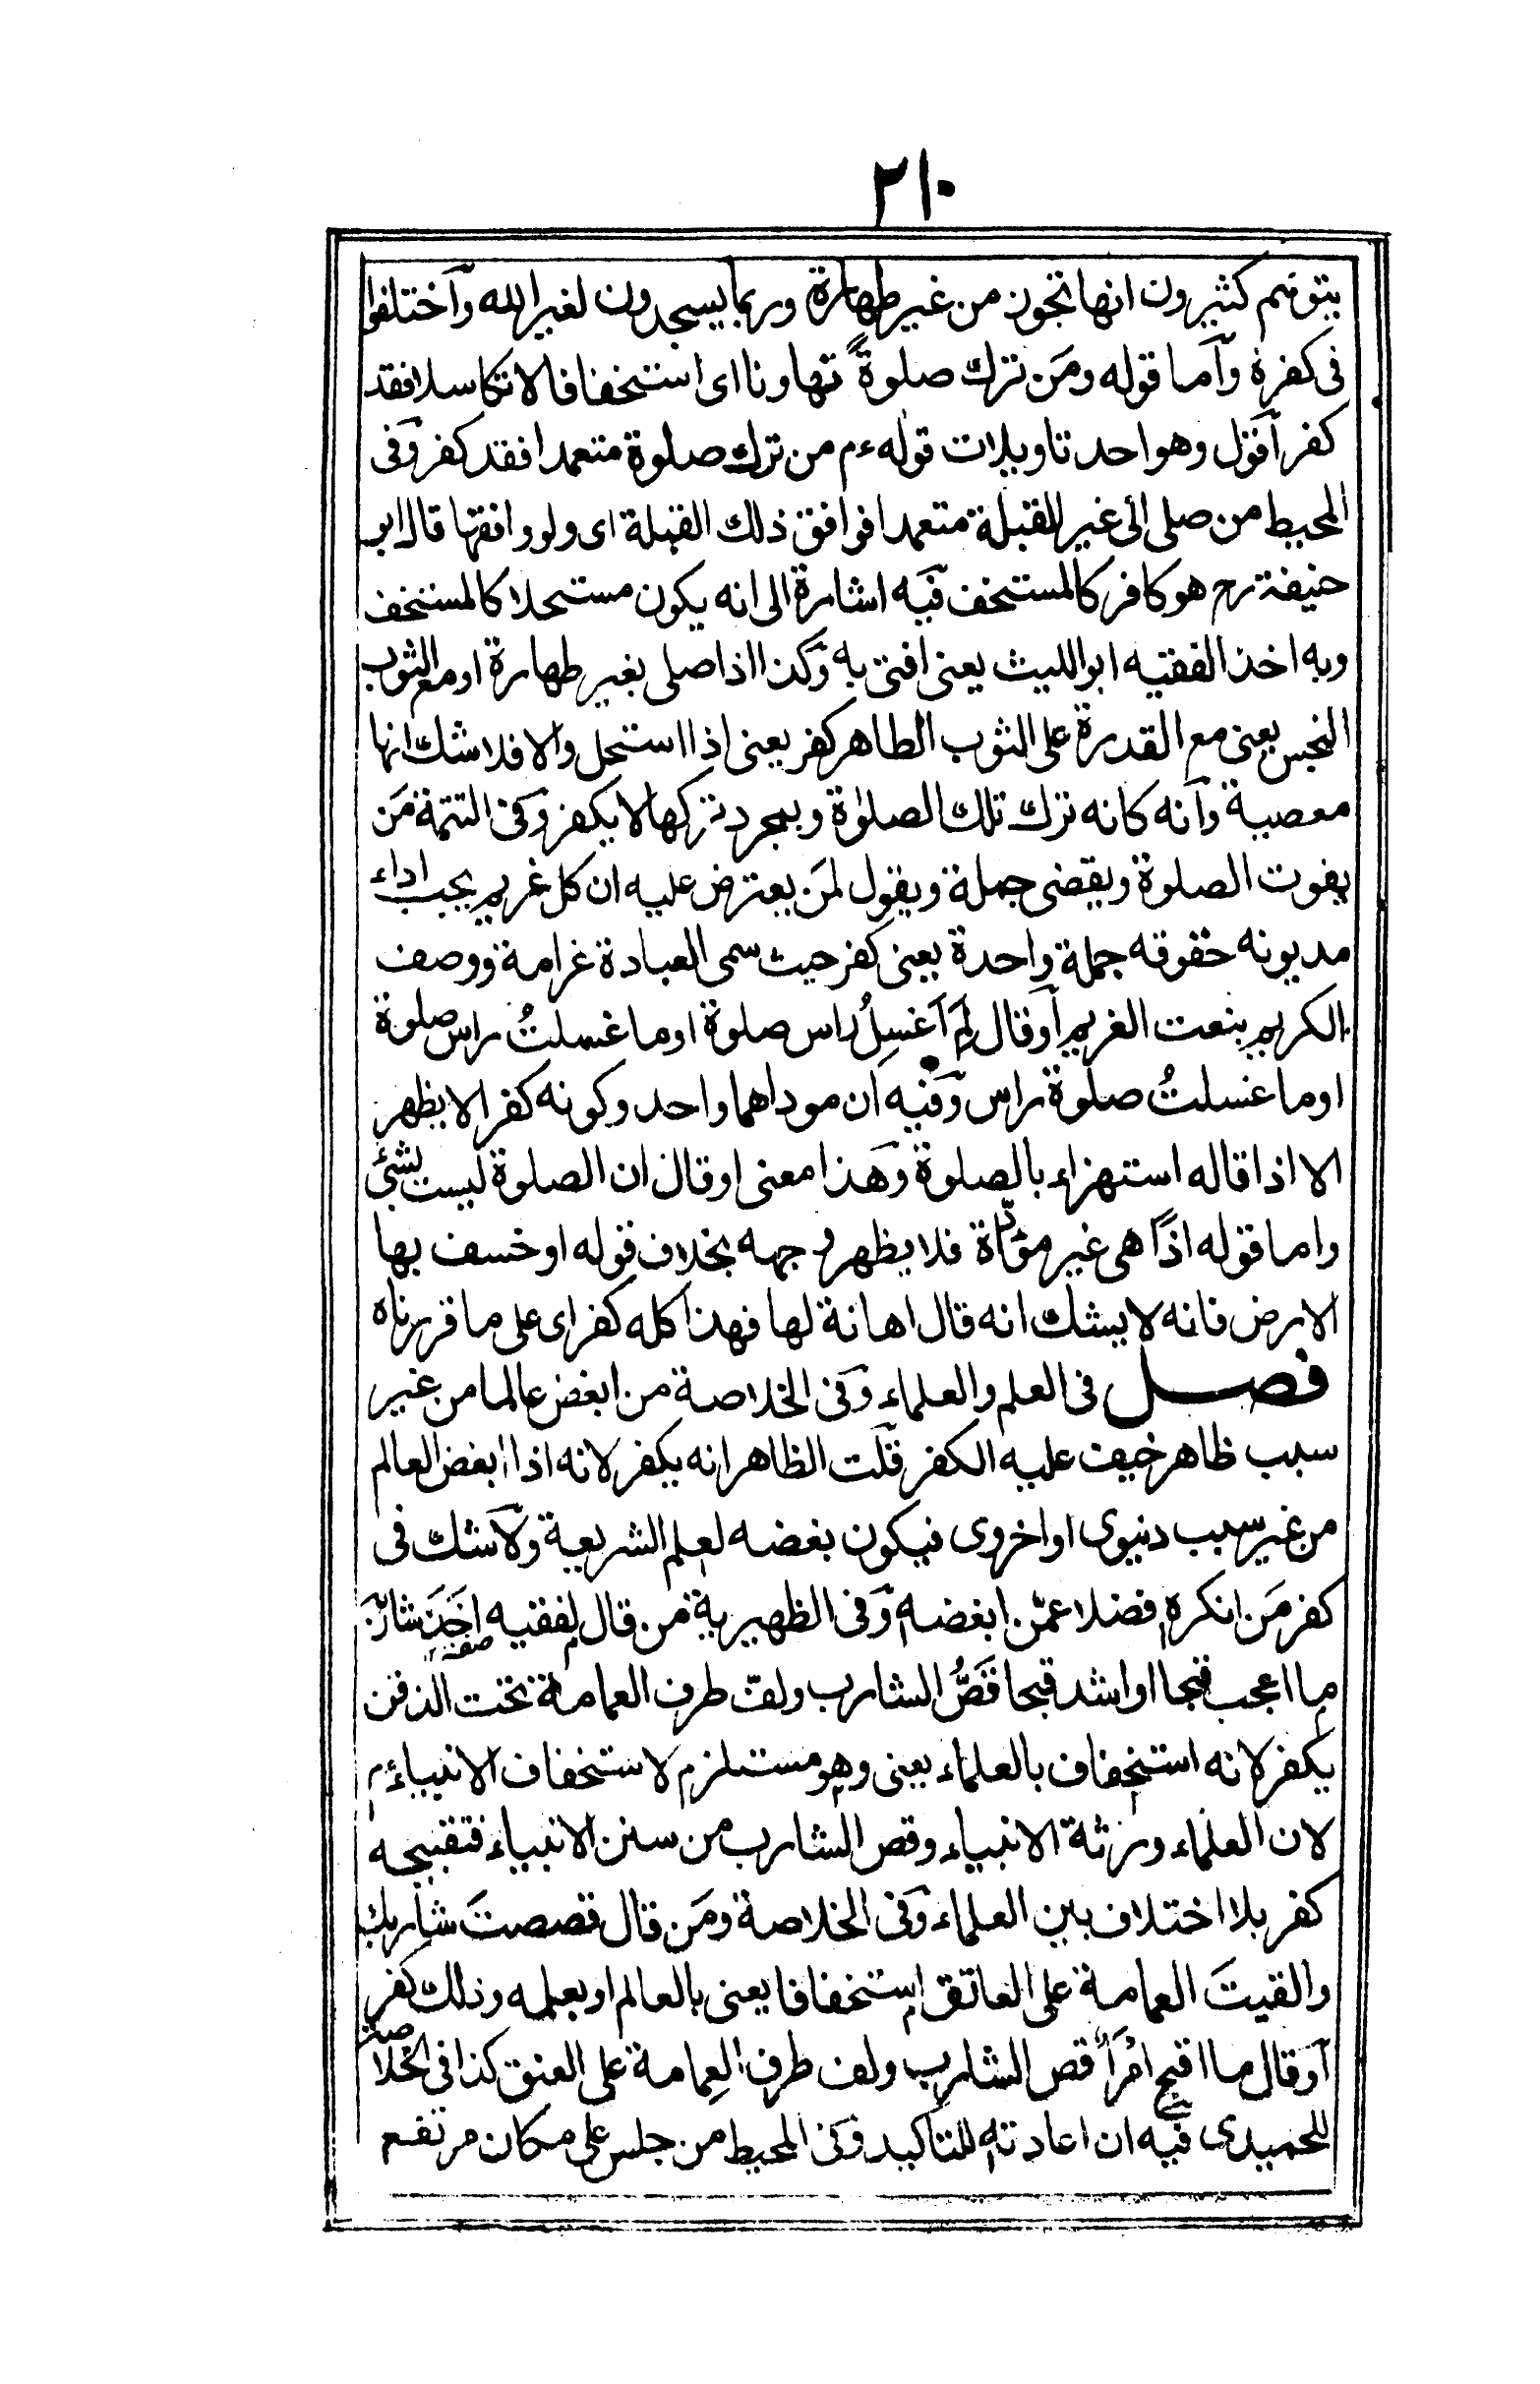 ٢١٠
يتوهم كثيرون انها تجوز من غير طهارة وربما يسجدون لغير الله واختلفوا
فى كفره وأما قوله ومَن ترك صلوةً تهاونا اى استخفافا لا تكاسلا فقد
كفر أقول وهو احد تاويلات قوله ءم من ترك صلوة متعمدا فقد كفر وفى
المحيط من صلى الى غير القبلة متعمدا فوافق ذلك القبلة اى ولو وافقها قال ابو
حنيفة رح هو كافر كالمستخف فيه اشارة الى انه يكون مستحلا كالمستخف
وبه اخذ الفقيه ابو الليث يعنى افتى به وكذا اذا صلى بغير طهارة او مع الثوب
النجس يعنى مع القدرة على الثوب الطاهر كفر يعنى اذا استحل والا فلا شك انها
معصية وأنه كانه ترك تلك الصلوٰة وبمجرد تركها لا يكفر وفى التتمة مَن
يفوت الصلوة ويقضى جملة ويقول لمَن يعترض عليه ان كل غريم يجب اداء
مديونه حقوقه جملة واحدة يعنى كفر حيث سمى العبادة غرامة ووصف
الكريم بنعت الغريم أو قال لِمَ أغسِلُ راس صلوة او ما غسلتُ راس صلوة
او ما غسلتُ صلوة راس وفيه ان موداهما واحد وكونه كفر الا يظهر
الا اذا قاله استهزاء بالصلوة وهذا معنى او قال ان الصلوة ليست بشئ
واما قوله اذاً هى غير مؤدّاة فلا يظهر وجهه بخلاف قوله او خسف بها
الارض فانه لا يشك انه قال اهانة لها فهذا كله كفر اى على ما قررناه
فصل فى العلم والعلماء وفى الخلاصة من ابغض عالما من غير
سبب ظاهر خيف عليه الكفر قلت الظاهر انه يكفر لانه اذا ابغض العالم
من غير سبب دنيوى او اخروى فيكون بغضه لعلم الشريعة ولا شك فى
كفر مَن انكره فضلا عمّن ابغضه وفى الظهيرية من قال لفقيه اخَذَ شاربَه
ما اعجب قبحا او اشد قبحا قَصُّ الشارب ولفّ طرف العمامة تحت الذقن
يكفر لانه استخفاف بالعلماء يعنى وهو مستلزم لاستخفاف الانبياء ءم
لان العلماء ورثة الانبياء وقص الشارب من سنن الانبياء فتقبيحه
كفر بلا اختلاف بين العلماء وفى الخلاصة ومَن قال قصصتَ شاربك
والقيتَ العمامة على العاتق استخفافا يعنى بالعالم او بعلمه وذلك كفر
أو قال ما اقبح امْرَأً قص الشارب ولف طرف العِمامة على العنق كذا فى الخلاصة
للحميدى فيه ان اعادته للتاكيد وفى المحيط من جلس على مكان مرتفع